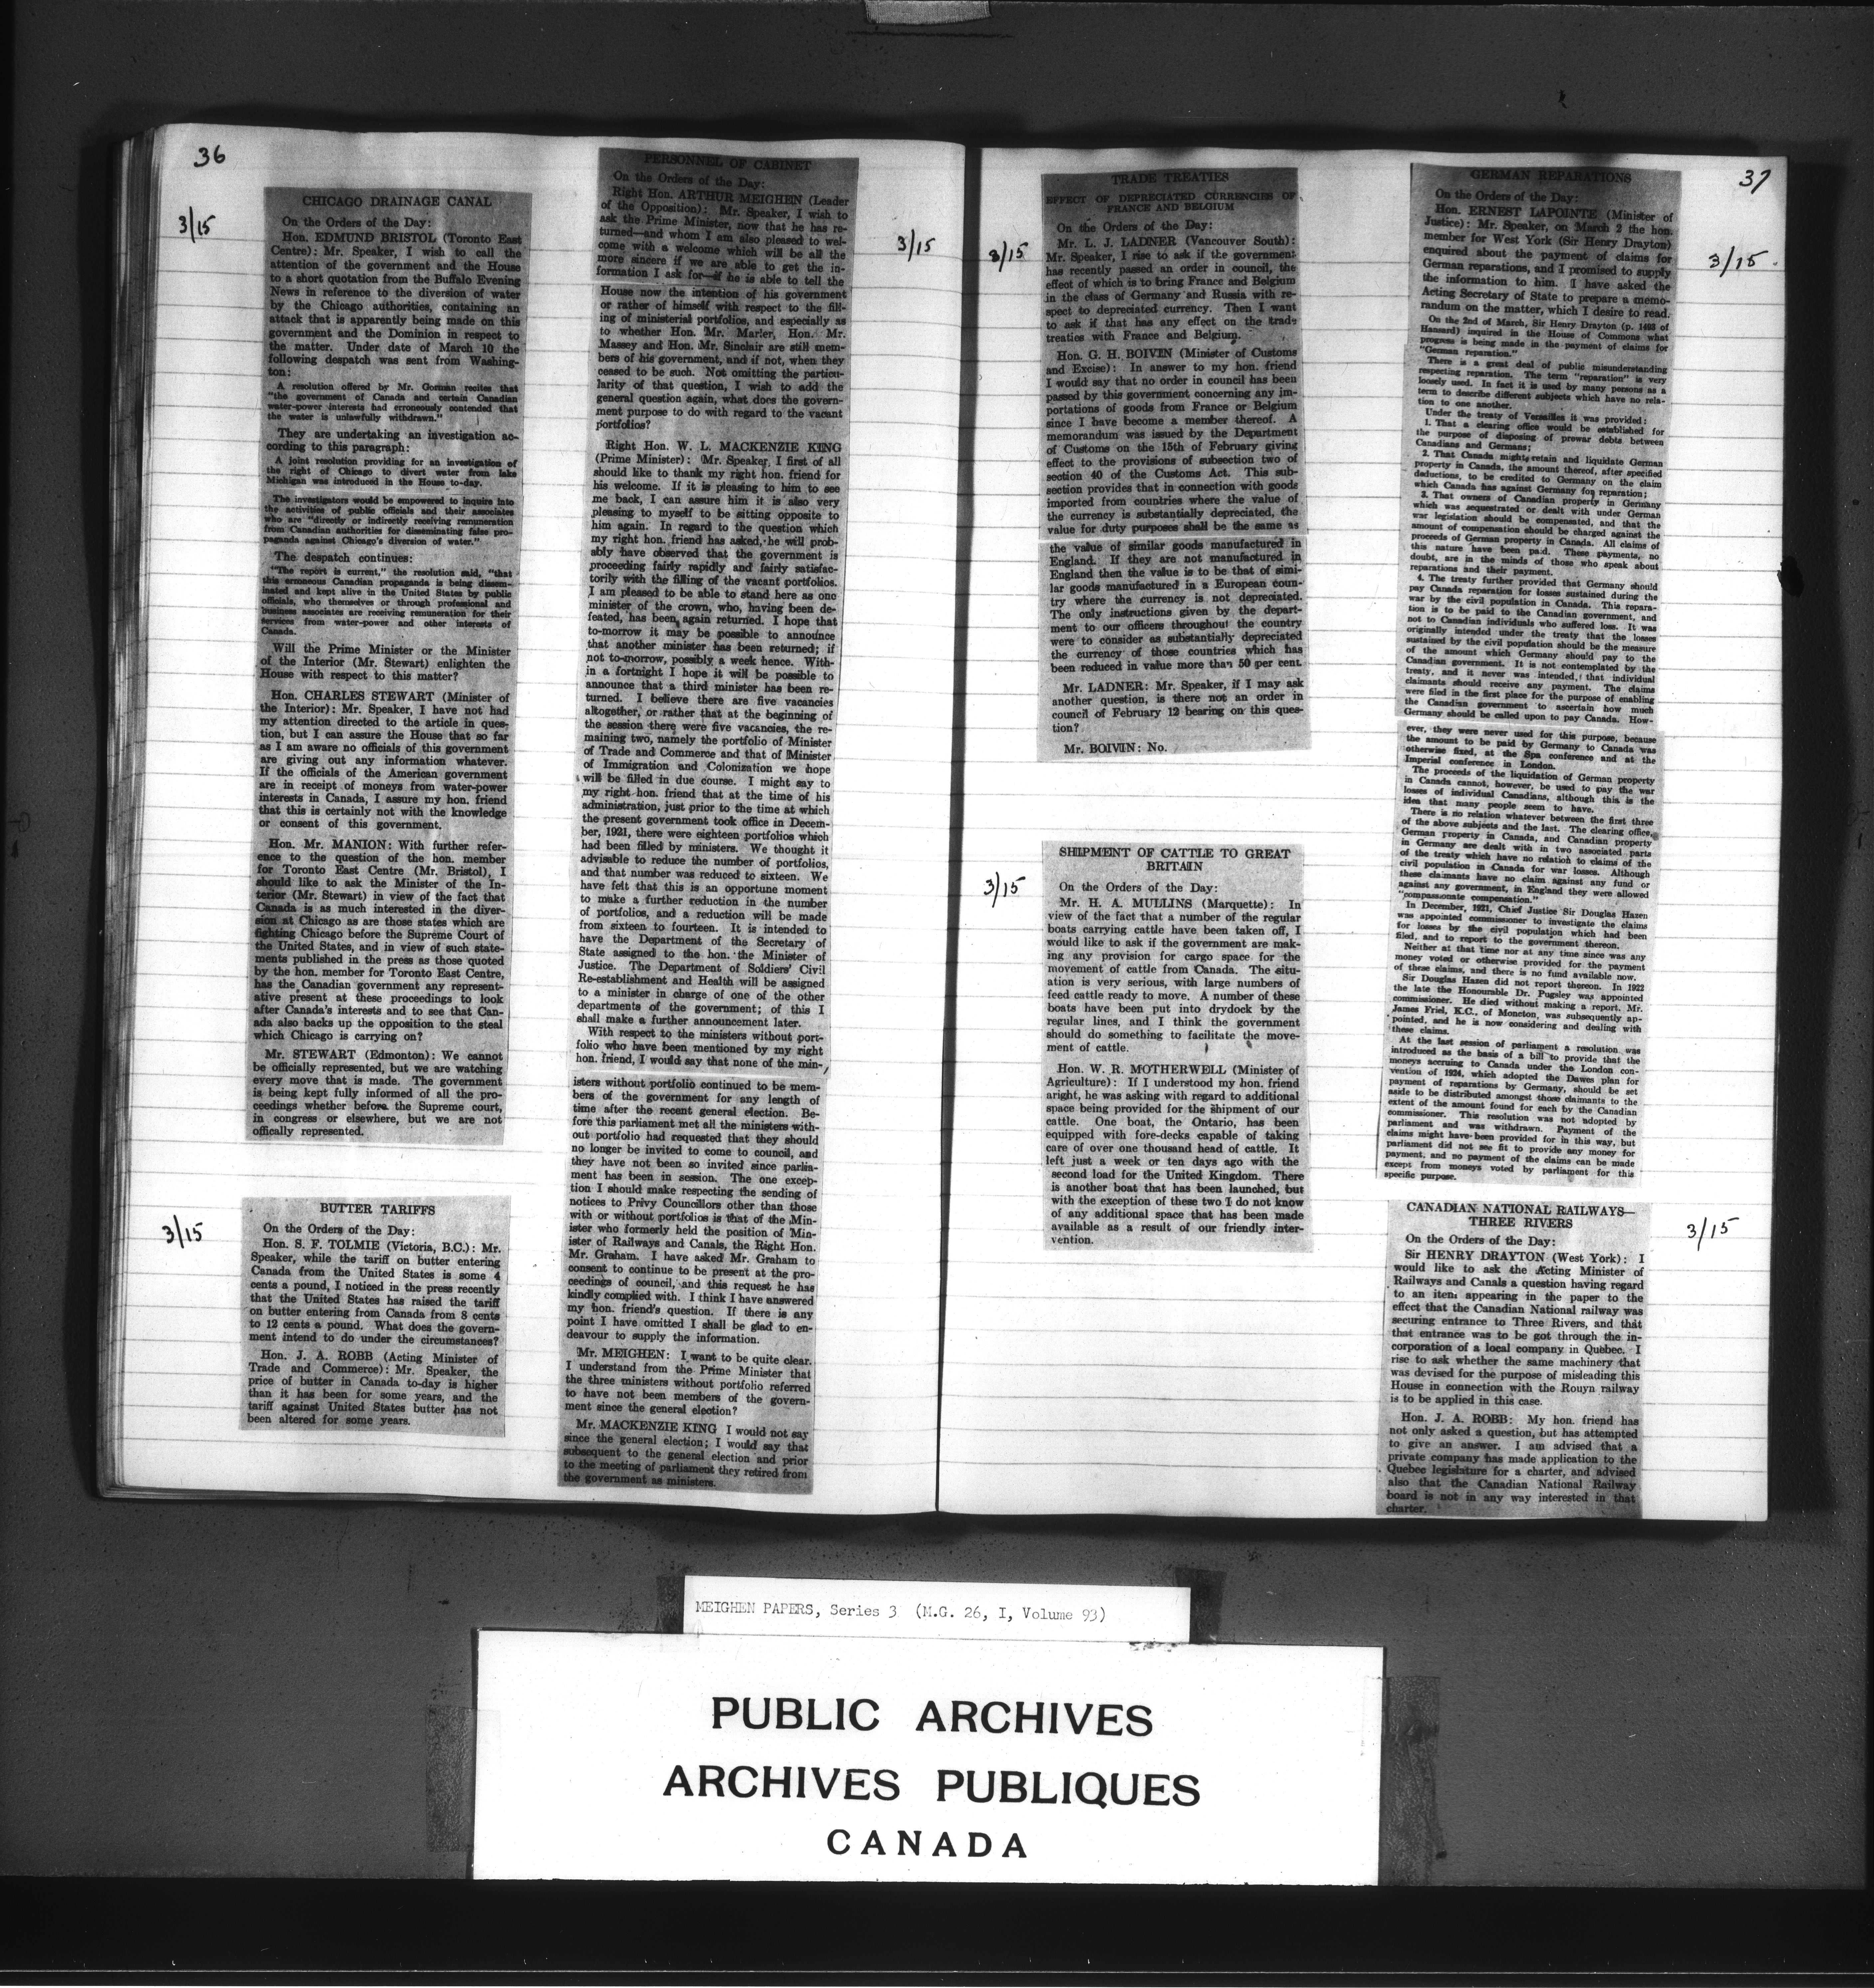 36
3/15
CHICAGO DRAINAGE CANAL
On the Orders of the Day:
Hon. EDMUND BRISTOL (Toronto East
Centre): Mr. Speaker, I wish to call the
attention of the government and the House
to a short quotation from the Buffalo Evening
News in reference to the diversion of water
by the Chicago authorities, containing an
attack that is apparently being made on this
government and the Dominion in respect to
the matter. Under date of March 10 the
following despatch was sent from Washing-
ton:
A resolution offered by Mr. Gorman recites that
"the government of Canada and certain Canadian
water-power interests had erroneously contended that
the water is unlawfully withdrawn."
They are undertaking an investigation ac-
cording to this paragraph:
A joint resolution providing for an investigation of
the right of Chicago to divert water from lake
Michigan was introduced in the House to-day.
The investigators would be empowered to inquire into
the activities of public officials and their associates
who are "directly or indirectly receiving remuneration
from Canadian authorities for disseminating false pro-
paganda against Chicago's diversion of water."
The despatch continues:
"The report is current," the resolution said, "that
this erroneous Canadian propaganda is being dissem-
inated and kept alive in the United States by public
officials, who themselves or through professional and
business associates are receiving remuneration for their
services from water-power and other interests of
Canada.
Will the Prime Minister or the Minister
of the Interior (Mr. Stewart) enlighten the
House with respect to this matter?
Hon. CHARLES STEWART (Minister of
the Interior): Mr. Speaker, I have not had
my attention directed to the article in ques-
tion, but I can assure the House that so far
as I am aware no officials of this government
are giving out any information whatever.
If the officials of the American government
are in receipt of moneys from water-power
interests in Canada, I assure my hon. friend
that this is certainly not with the knowledge
or consent of this government.
Hon. Mr. MANION: With further refer-
ence to the question of the hon. member
for Toronto East Centre (Mr. Bristol), I
should like to ask the Minister of the In-
terior (Mr. Stewart) in view of the fact that
Canada is as much interested in the diver-
sion at Chicago as are those states which are
fighting Chicago before the Supreme Court of
the United States, and in view of such state-
ments published in the press as those quoted
by the hon. member for Toronto East Centre,
has the Canadian government any represent-
ative present at these proceedings to look
after Canada's interests and to see that Can-
ada also backs up the opposition to the steal
which Chicago is carrying on?
Mr. STEWART (Edmonton): We cannot
be officially represented, but we are watching
every move that is made. The government
is being kept fully informed of all the pro-
ceedings whether before the Supreme court,
in congress or elsewhere, but we are not
offically represented.
3/15
BUTTER TARIFFS
On the Orders of the Day:
Hon. S. F. TOLMIE (Victoria, B.C.): Mr.
Speaker, while the tariff on butter entering
Canada from the United States is some 4
cents a pound, I noticed in the press recently
that the United States has raised the tariff
on butter entering from Canada from 8 cents
to 12 cents a pound. What does the govern-
ment intend to do under the circumstances?
Hon. J. A. ROBB (Acting Minister of
Trade and Commerce): Mr. Speaker, the
price of butter in Canada to-day is higher
than it has been for some years, and the
tariff against United States butter has not
been altered for some years.
PERSONNEL OF CABINET
On the Orders of the Day:
Right Hon. ARTHUR MEIGHEN (Leader
of the Opposition): Mr. Speaker, I wish to
ask the Prime Minister, now that he has re-
turned—and whom I am also pleased to wel-
come with a welcome which will be all the
more sincere if we are able to get the in-
formation I ask for—if he is able to tell the
House now the intention of his government
or rather of himself with respect to the fill-
ing of ministerial portfolios, and especially as
to whether Hon. Mr. Marler, Hon. Mr.
Massey and Hon. Mr. Sinclair are still mem-
bers of his government, and if not, when they
ceased to be such. Not omitting the particu-
larity of that question, I wish to add the
general question again, what does the govern-
ment purpose to do with regard to the vacant
portfolios?
Right Hon. W. L. MACKENZIE KING
(Prime Minister): Mr. Speaker, I first of all
should like to thank my right hon. friend for
his welcome. If it is pleasing to him to see
me back, I can assure him it is also very
pleasing to myself to be sitting opposite to
him again. In regard to the question which
my right hon. friend has asked, he will prob-
ably have observed that the government is
proceeding fairly rapidly and fairly satisfac-
torily with the filling of the vacant portfolios.
I am pleased to be able to stand here as one
minister of the crown, who, having been de-
feated, has been again returned. I hope that
to-morrow it may be possible to announce
that another minister has been returned; if
not to-morrow, possibly a week hence. With-
in a fortnight I hope it will be possible to
announce that a third minister has been re-
turned. I believe there are five vacancies
altogether, or rather that at the beginning of
the session there were five vacancies, the re-
maining two, namely the portfolio of Minister
of Trade and Commerce and that of Minister
of Immigration and Colonization we hope
will be filled in due course. I might say to
my right hon. friend that at the time of his
administration, just prior to the time at which
the present government took office in Decem-
ber, 1921, there were eighteen portfolios which
had been filled by ministers. We thought it
advisable to reduce the number of portfolios,
and that number was reduced to sixteen. We
have felt that this is an opportune moment
to make a further reduction in the number
of portfolios, and a reduction will be made
from sixteen to fourteen. It is intended to
have the Department of the Secretary of
State assigned to the hon. the Minister of
Justice. The Department of Soldiers' Civil
Re-establishment and Health will be assigned
to a minister in charge of one of the other
departments of the government; of this I
shall make a further announcement later.
With respect to the ministers without port-
folio who have been mentioned by my right
hon. friend, I would say that none of the min-
isters without portfolio continued to be mem-
bers of the government for any length of
time after the recent general election. Be-
fore this parliament met all the ministers with-
out portfolio had requested that they should
no longer be invited to come to council, and
they have not been so invited since parlia-
ment has been in session. The one excep-
tion I should make respecting the sending of
notices to Privy Councillors other than those
with or without portfolios is that of the Min-
ister who formerly held the position of Min-
ister of Railways and Canals, the Right Hon.
Mr. Graham. I have asked Mr. Graham to
consent to continue to be present at the pro-
ceedings of council, and this request he has
kindly complied with. I think I have answered
my hon. friend's question. If there is any
point I have omitted I shall be glad to en-
deavour to supply the information.
Mr. MEIGHEN: I want to be quite clear.
I understand from the Prime Minister that
the three ministers without portfolio referred
to have not been members of the govern-
ment since the general election?
Mr. MACKENZIE KING I would not say
since the general election; I would say that
subsequent to the general election and prior
to the meeting of parliament they retired from
the government as ministers.
3/15
37
3/15
TRADE TREATIES
EFFECT OF DEPRECIATED CURRENCIES OF
FRANCE AND BELGIUM
On the Orders of the Day:
Mr. L. J. LADNER (Vancouver South):
Mr. Speaker, I rise to ask if the government
has recently passed an order in council, the
effect of which is to bring France and Belgium
in the class of Germany and Russia with re-
spect to depreciated currency. Then I want
to ask if that has any effect on the trade
treaties with France and Belgium.
Hon. G. H. BOIVIN (Minister of Customs
and Excise): In answer to my hon. friend
I would say that no order in council has been
passed by this government concerning any im-
portations of goods from France or Belgium
since I have become a member thereof. A
memorandum was issued by the Department
of Customs on the 15th of February giving
effect to the provisions of subsection two of
section 40 of the Customs Act. This sub-
section provides that in connection with goods
imported from countries where the value of
the currency is substantially depreciated, the
value for duty purposes shall be the same as
the value of similar goods manufactured in
England. If they are not manufactured in
England then the value is to be that of simi-
lar goods manufactured in a European coun-
try where the currency is not depreciated.
The only instructions given by the depart-
ment to our officers throughout the country
were to consider as substantially depreciated
the currency of those countries which has
been reduced in value more than 50 per cent.
Mr. LADNER: Mr. Speaker, if I may ask
another question, is there not an order in
council of February 12 bearing on this ques-
tion?
Mr. BOIVIN: No.
3/15
SHIPMENT OF CATTLE TO GREAT
BRITAIN
On the Orders of the Day:
Mr. H. A. MULLINS (Marquette): In
view of the fact that a number of the regular
boats carrying cattle have been taken off, I
would like to ask if the government are mak-
ing any provision for cargo space for the
movement of cattle from Canada. The situ-
ation is very serious, with large numbers of
feed cattle ready to move. A number of these
boats have been put into drydock by the
regular lines, and I think the government
should do something to facilitate the move-
ment of cattle.
Hon. W. R. MOTHERWELL (Minister of
Agriculture): If I understood my hon. friend
aright, he was asking with regard to additional
space being provided for the shipment of our
cattle. One boat, the Ontario, has been
equipped with fore-decks capable of taking
care of over one thousand head of cattle. It
left just a week or ten days ago with the
second load for the United Kingdom. There
is another boat that has been launched, but
with the exception of these two I do not know
of any additional space that has been made
available as a result of our friendly inter-
vention.
GERMAN REPARATIONS
On the Orders of the Day:
Hon. ERNEST LAPOINTE (Minister of
Justice): Mr. Speaker, on March 2 the hon.
member for West York (Sir Henry Drayton)
enquired about the payment of claims for
German reparations, and I promised to supply
the information to him. I have asked the
Acting Secretary of State to prepare a memo-
randum on the matter, which I desire to read.
On the 2nd of March, Sir Henry Drayton (p. 1493 of
Hansard) inquired in the House of Commons what
progress is being made in the payment of claims for
"German reparation."
There is a great deal of public misunderstanding
respecting reparation. The term "reparation" is very
loosely used. In fact it is used by many persons as a
term to describe different subjects which have no rela-
tion to one another.
Under the treaty of Versailles it was provided:
1. That a clearing office would be established for
the purpose of disposing of prewar debts between
Canadians and Germans;
2. That Canada might retain and liquidate German
property in Canada, the amount thereof, after specified
deductions, to be credited to Germany on the claim
which Canada has against Germany for reparation;
3. That owners of Canadian property in Germany
which was sequestrated or dealt with under German
war legislation should be compensated, and that the
amount of compensation should be charged against the
proceeds of German property in Canada. All claims of
this nature have been paid. These payments, no
doubt, are in the minds of those who speak about
reparations and their payment.
4. The treaty further provided that Germany should
pay Canada reparation for losses sustained during the
war by the civil population in Canada. This repara-
tion is to be paid to the Canadian government, and
not to Canadian individuals who suffered loss. It was
originally intended under the treaty that the losses
sustained by the civil population should be the measure
of the amount which Germany should pay to the
Canadian government. It is not contemplated by the
treaty, and it never was intended, that individual
claimants should receive any payment. The claims
were filed in the first place for the purpose of enabling
the Canadian government to ascertain how much
Germany should be called upon to pay Canada. How-
ever, they were never used for this purpose, because
the amount to be paid by Germany to Canada was
otherwise fixed, at the Spa conference and at the
Imperial conference in London.
The proceeds of the liquidation of German property
in Canada cannot, however, be used to pay the war
losses of individual Canadians, although this is the
idea that many people seem to have.
There is no relation whatever between the first three
of the above subjects and the last. The clearing office,
German property in Canada, and Canadian property
in Germany are dealt with in two associated parts
of the treaty which have no relation to claims of the
civil population in Canada for war losses. Although
these claimants have no claim against any fund or
against any government, in England they were allowed
"compassionate compensation."
In December, 1921, Chief Justice Sir Douglas Hazen
was appointed commissioner to investigate the claims
for losses by the civil population which had been
filed, and to report to the government thereon.
Neither at that time nor at any time since was any
money voted or otherwise provided for the payment
of these claims, and there is no fund available now.
Sir Douglas Hazen did not report thereon. In 1922
the late the Honourable Dr. Pugsley was appointed
commissioner. He died without making a report. Mr.
James Friel, K.C., of Moncton, was subsequently ap-
pointed, and he is now considering and dealing with
these claims.
At the last session of parliament a resolution was
introduced as the basis of a bill to provide that the
moneys accruing to Canada under the London con-
vention of 1924, which adopted the Dawes plan for
payment of reparations by Germany, should be set
aside to be distributed amongst those claimants to the
extent of the amount found for each by the Canadian
commissioner. This resolution was not adopted by
parliament and was withdrawn. Payment of the
claims might have been provided for in this way, but
parliament did not see fit to provide any money for
payment, and no payment of the claims can be made
except from moneys voted by parliament for this
specific purpose.
3/15
CANADIAN NATIONAL RAILWAYS—
THREE RIVERS
On the Orders of the Day:
Sir HENRY DRAYTON (West York): I
would like to ask the Acting Minister of
Railways and Canals a question having regard
to an item appearing in the paper to the
effect that the Canadian National railway was
securing entrance to Three Rivers, and that
that entrance was to be got through the in-
corporation of a local company in Quebec. I
rise to ask whether the same machinery that
was devised for the purpose of misleading this
House in connection with the Rouyn railway
is to be applied in this case.
Hon. J. A. ROBB: My hon. friend has
not only asked a question, but has attempted
to give an answer. I am advised that a
private company has made application to the
Quebec legislature for a charter, and advised
also that the Canadian National Railway
board is not in any way interested in that
charter.
3/15
MEIGHEN PAPERS, Series 3 (M.G. 26, I, Volume 93)
PUBLIC ARCHIVES
ARCHIVES PUBLIQUES
CANADA